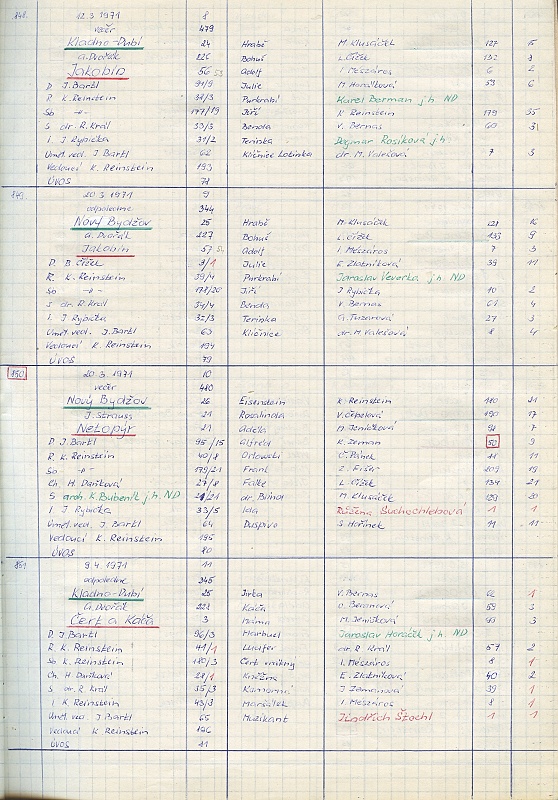 848. 12.3.1971 8
večer 479
Kladno-Dubí 24 Hrabě M. Klusáček 127 15
A. Dvořák 226 Bohuš L. Čížek 132 8
Jakobín 56 53 Adolf I. Mészáros 6 2
D J. Bartl 91/9 Julie M. Horáčková 53 6
R K. Reinstein 38/3 Purkrabí Karel Berman j.h. ND
So -"- 177/19 Jiří K Reinstein 179 35
S dr. R. Král 33/3 Benda V. Bernas 60 3
I. J. Rypička 31/2 Terinka Dagmar Rosíková j.h.
Uměl. ved. J Bartl 62 Klíčnice Lotinka dr. M. Valešová 7 3
Vedoucí K. Reinstein 193
ÚVOS 78
849. 20.3.1971 9
odpoledne 344
Nový Bydžov 25 Hrabě M. Klusáček 121 16
A. Dvořák 227 Bohuš L. Čížek 133 9
Jakobín 57 54 Adolf I. Mészáros 7 3
D. B. Čížek 3/1 Julie E. Zlatníková 39 11
R. K. Reinstein 39/4 Purkrabí Jaroslav Veverka j.h. ND
So -"- 178/20 Jiří J Rypička 10 2
S dr. R. Král 34/4 Benda V. Bernas 61 4
I. J. Rypička 32/3 Terinka G. Tuzarová 27 3
Uměl. ved. J. Bartl 63 Klíčnice dr. M. Valešová 8 4
Vedoucí K. Reinstein 194
ÚVOS 79
850 20.3.1971 10
večer 480
Nový Bydžov 26 Eisenstein K. Reinstein 180 21
J. Strauss 21 Rosalinda V. Čepelová 190 17
Netopýr 21 Adéla M. Jeníčková 91 7
D J. Bartl 95/15 Alfréd K. Zeman 50 9
R K. Reinstein 40/8 Orlowski Č. Pánek 11 11
So -"- 179/21 Frank Z. Fišer 209 19
Ch. H. Daňková 27/8 Falke L. Čížek 134 21
S arch. K. Bubeník j.h. ND 21/21 dr. Blind M. Klusáček 129 20
I J. Rypička 33/5 Ida Růžena Buchochlebová 1 1
Uměl. ved. J. Bartl 64 Duspivo S. Hořínek 11 11
Vedoucí K. Reinstein 195
ÚVOS 80
851 9.4.1971 11
odpoledne 345
Kladno-Dubí 25 Jirka V. Bernas 62 1
A. Dvořák 228 Káča O. Beranová 59 3
Čert a Káča 3 Máma M. Jeníčková 3
D. J. Bartl 96/3 Marbuel Jaroslav Horáček j.h. ND
R K. Reinstein 41/1 Lucifer dr. R. Král 57 2
So K. Reinstein 180/3 Čert vrátný I. Mészáros 8 1
Ch. H Daňková 28/1 Kněžna E. Zlatníková 40 2
S dr. R. Král 35/3 Komorná J Zemanová 39 1
I K. Reinstein 43/3 Maršálek I. Mészáros 8 1
Uměl. ved. J Bartl 65 Muzikant Jindřich Štochl 1 1
Vedoucí K Reinstein 196
ÚVOS 11